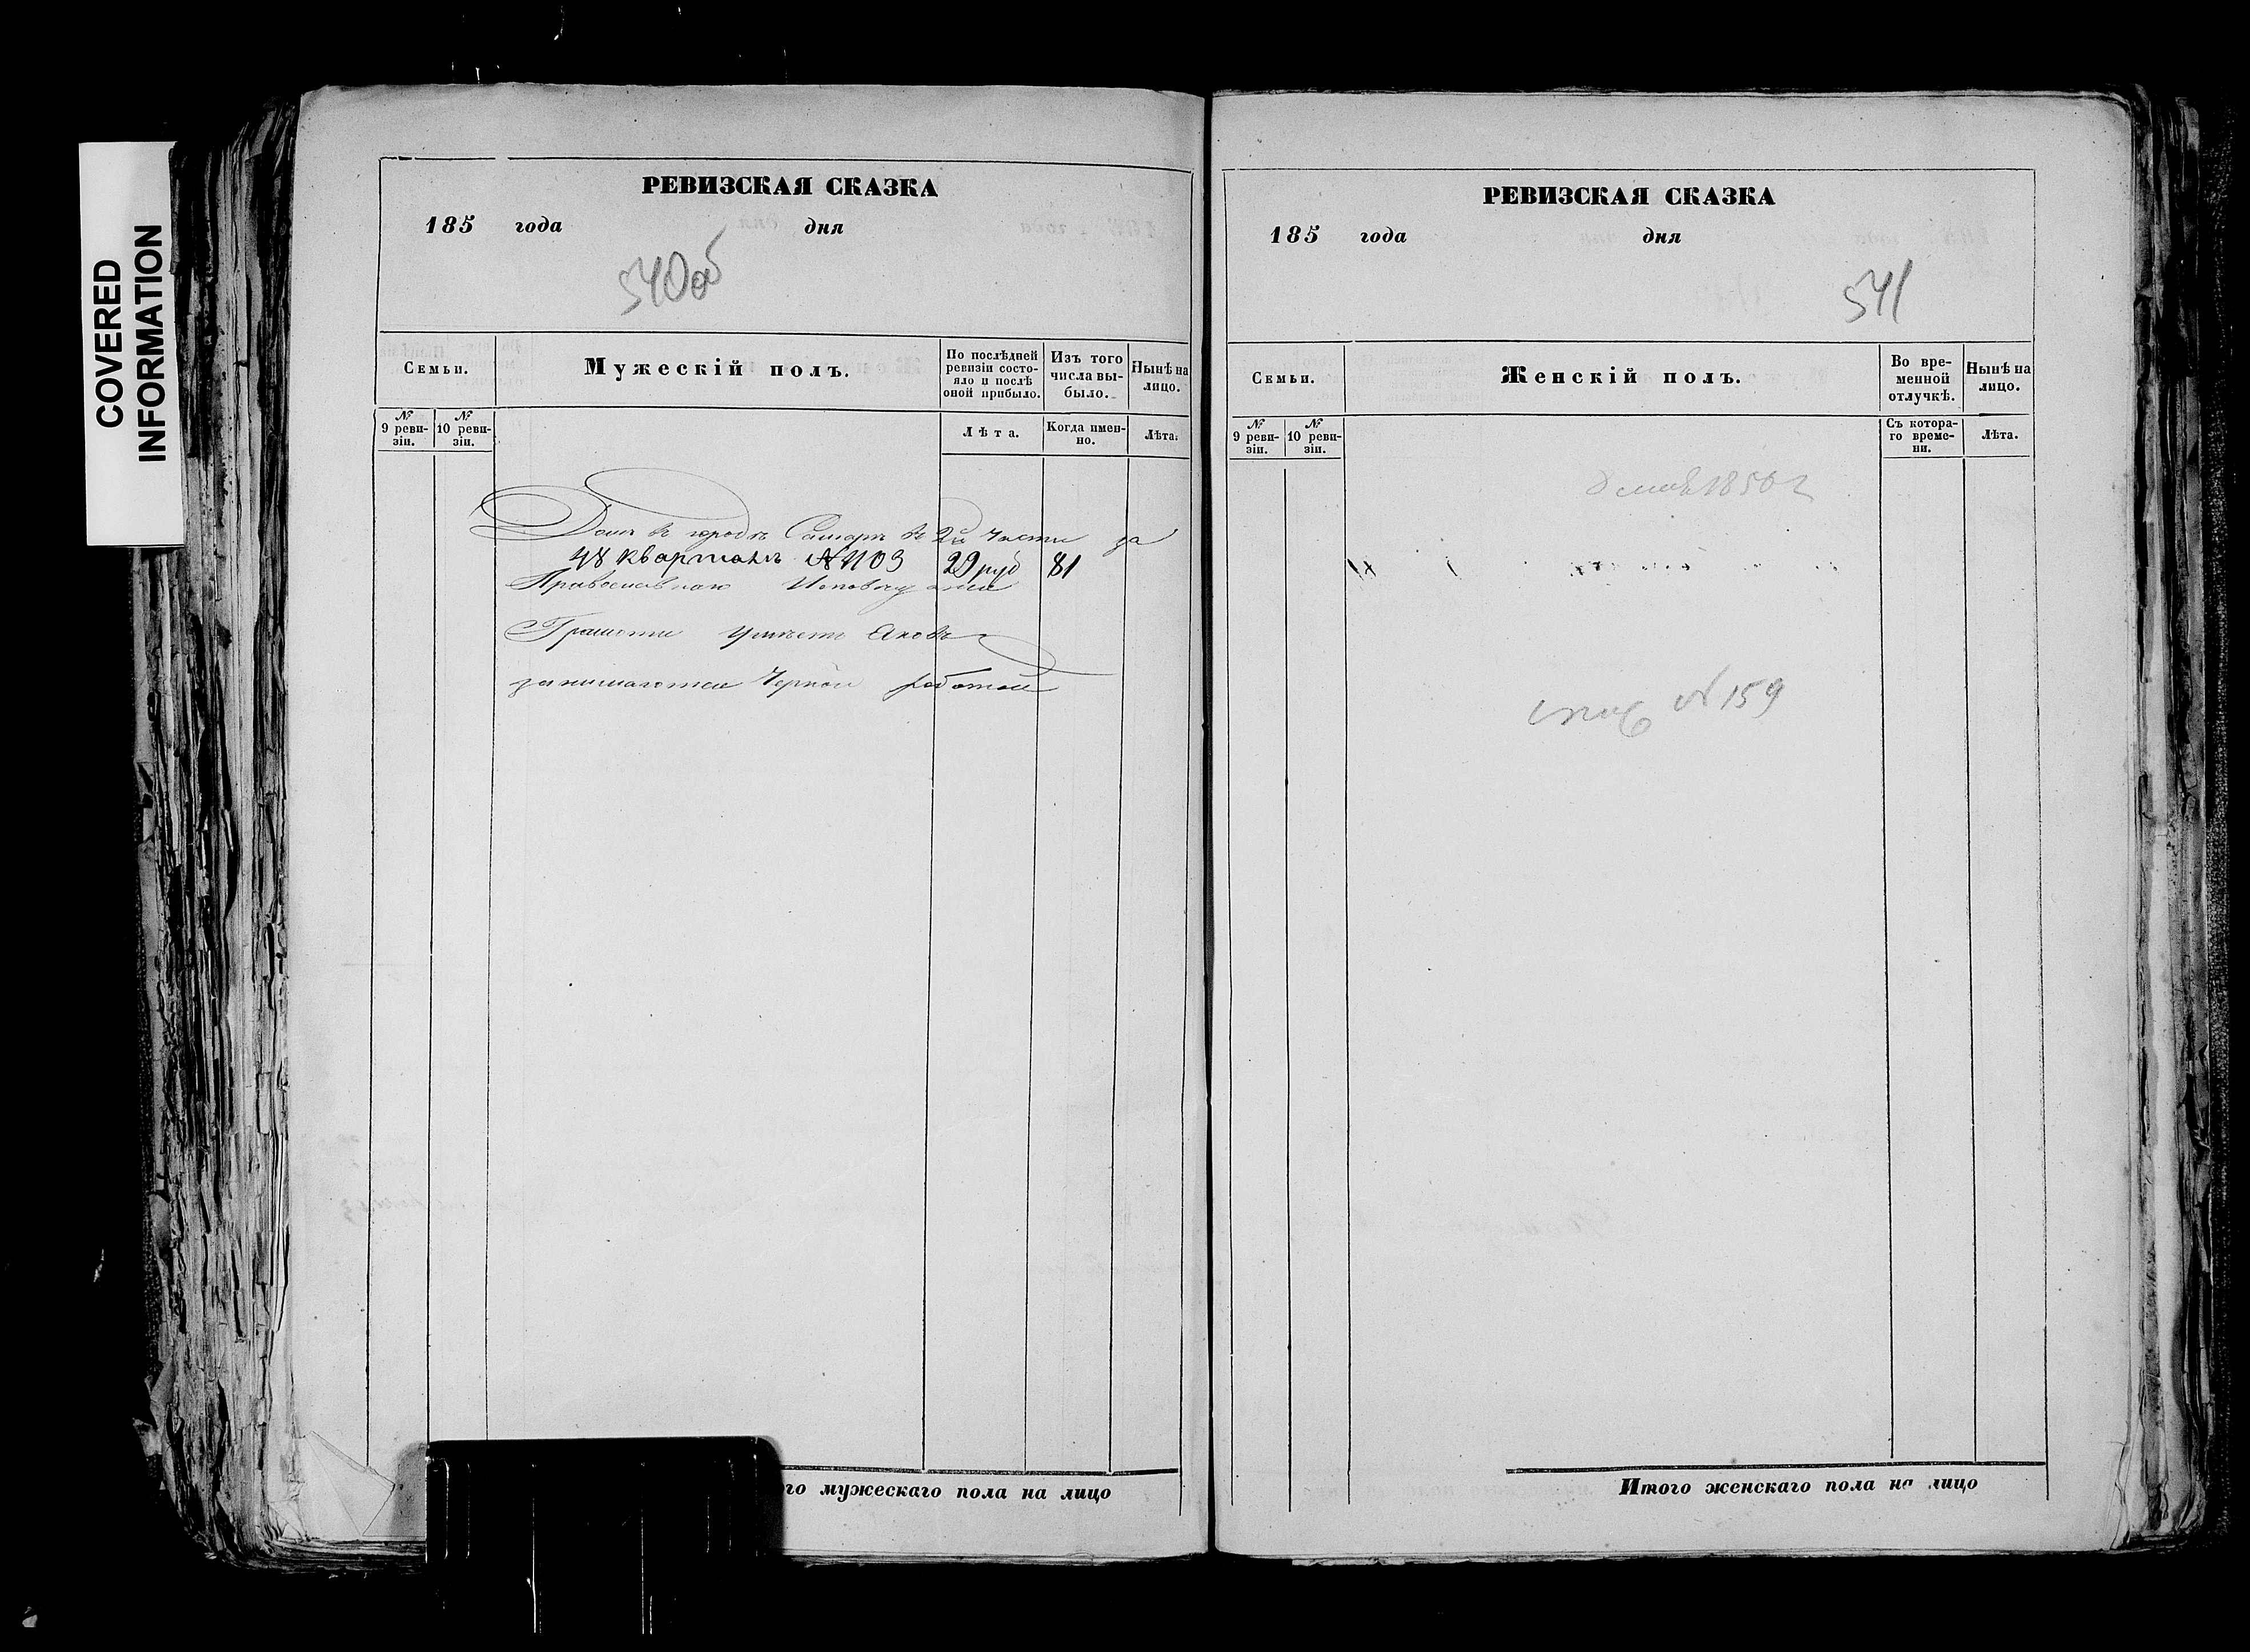 COVERED
INFORMATION
РЕВИЗСКАЯ СКАЗКА
185 года дня
540об
Семьи.
Мужескій полъ.
По послѣдней ревизіи состояло и послѣ оной прибыло.
Изъ того числа выбыло.
Нынѣ на лицо.
№ 9 ревизіи.
№ 10 ревизіи.
Лѣта.
Когда именно.
Лѣта.
Домъ въ городѣ Самарѣ во 2й части за
48 кварталъ №1103 29 руб 81
Православнаго Исповеданія
Грамоти умѣетъ Яковъ
занимаются Черной работой
го мужескаго пола на лицо
РЕВИЗСКАЯ СКАЗКА
185 года дня
541
Семьи.
Женскій полъ.
Во временной отлучкѣ.
Нынѣ на лицо.
№ 9 ревизіи.
№ 10 ревизіи.
Съ котораго времени.
Лѣта.
1850 г
№ 159
Итого женскаго пола на лицо